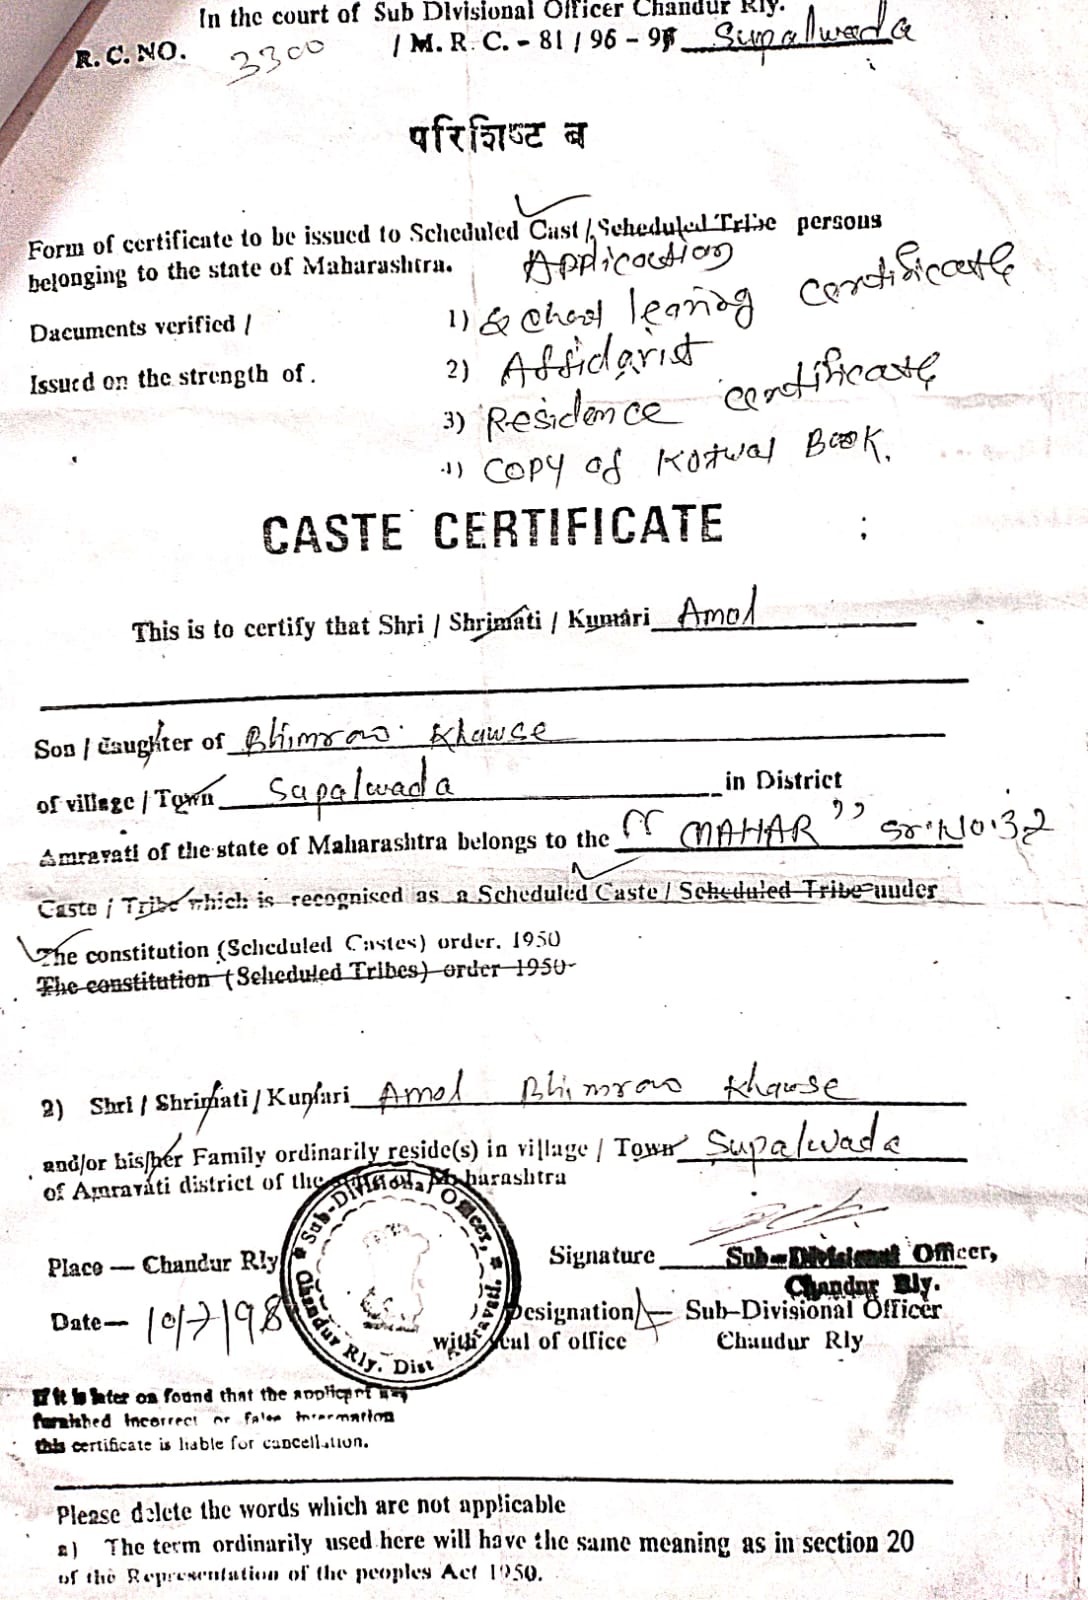 In the court of Sub Divisional Officer Chandur Rly.
R. C. NO. 3300 / M. R. C. - 81 / 96 - 97 Supalwada
परिशिष्ट ब
Form of certificate to be issued to Scheduled Cast / Scheduled Tribe persons
belonging to the state of Maharashtra.
Application
Dacuments verified /
1) School leaning certificate
Issued on the strength of.
2) Affidavit
3) Residence certificate
4) COPY of Kotwal Book.
CASTE CERTIFICATE
This is to certify that Shri / Shrimati / Kumari Amol
Son / daughter of Bhimrao Khawse
of village / Town Supalwada in District
Amravati of the state of Maharashtra belongs to the "MAHAR" Sr.No.32
Caste / Tribe which is recognised as a Scheduled Caste / Scheduled Tribe under
The constitution (Scheduled Castes) order. 1950
The constitution (Scheduled Tribes) order 1950
2) Shri / Shrimati / Kumari Amol Bhimrao Khawse
and/or his/her Family ordinarily reside(s) in village / Town Supalwada
of Amravati district of the Maharashtra
Sub-Divisional Officer, Chandur Rly. Dist Amravati.
Place — Chandur Rly
Signature
Sub-Divisional Officer,
Chandur Rly.
Date— 10/7/98
Designation Sub-Divisional Officer
with seal of office Chaudur Rly
If it is later on found that the applicant
furnished incorrect or false information
this certificate is liable for cancellation.
Please delete the words which are not applicable
a) The term ordinarily used here will have the same meaning as in section 20
of the Representation of the peoples Act 1950.